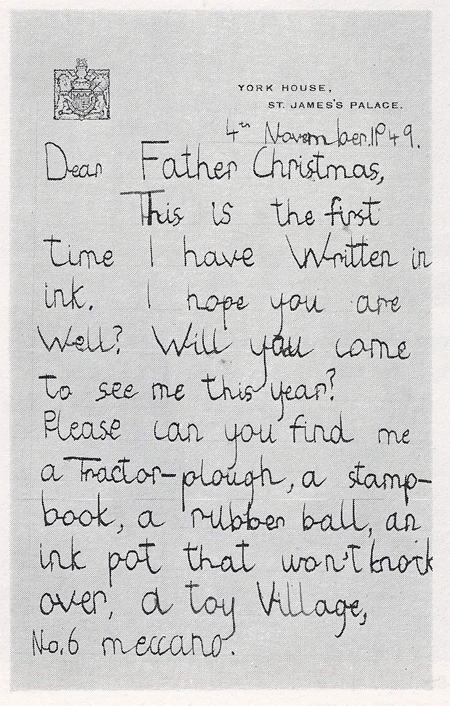 YORK HOUSE,
ST. JAMES'S PALACE.
4th November.1949.
Dear Father Christmas,
This is the first
time I have Written in
ink. I hope you are
Well? Will you come
to see me this year?
Please can you find me
a Tractor-plough, a stamp-
book, a rubber ball, an
ink pot that won't knock
over, a toy Village,
No.6 meccano.